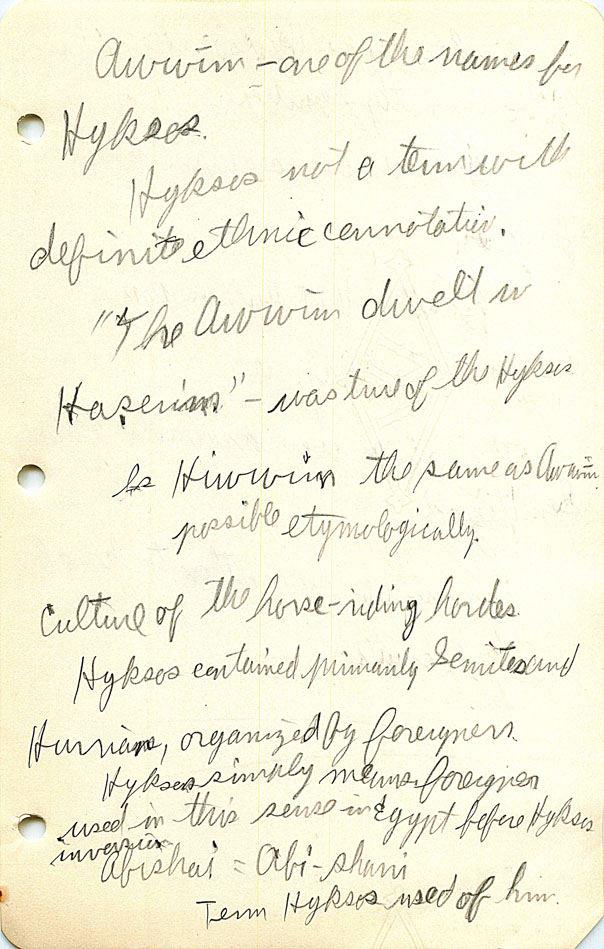 Awwim – one of the names for
Hyksos.
Hyksos not a term with
definite ethnic connotation.
"The Awwim dwell in
Haṣerim" – was true of the Hyksos
Is Hiwwim the same as Awwim.
possible etymologically.
Culture of the horse-riding hordes
Hyksos contained primarily Semites and
Hurrians, organized by foreigners.
Hyksos simply means foreigner
used in this sense in Egypt before Hyksos
invasion
Abishai = Abi-shari
Term Hyksos used of him.